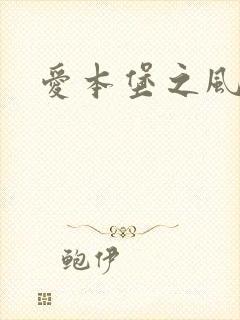 愛本堡之風
鲍伊